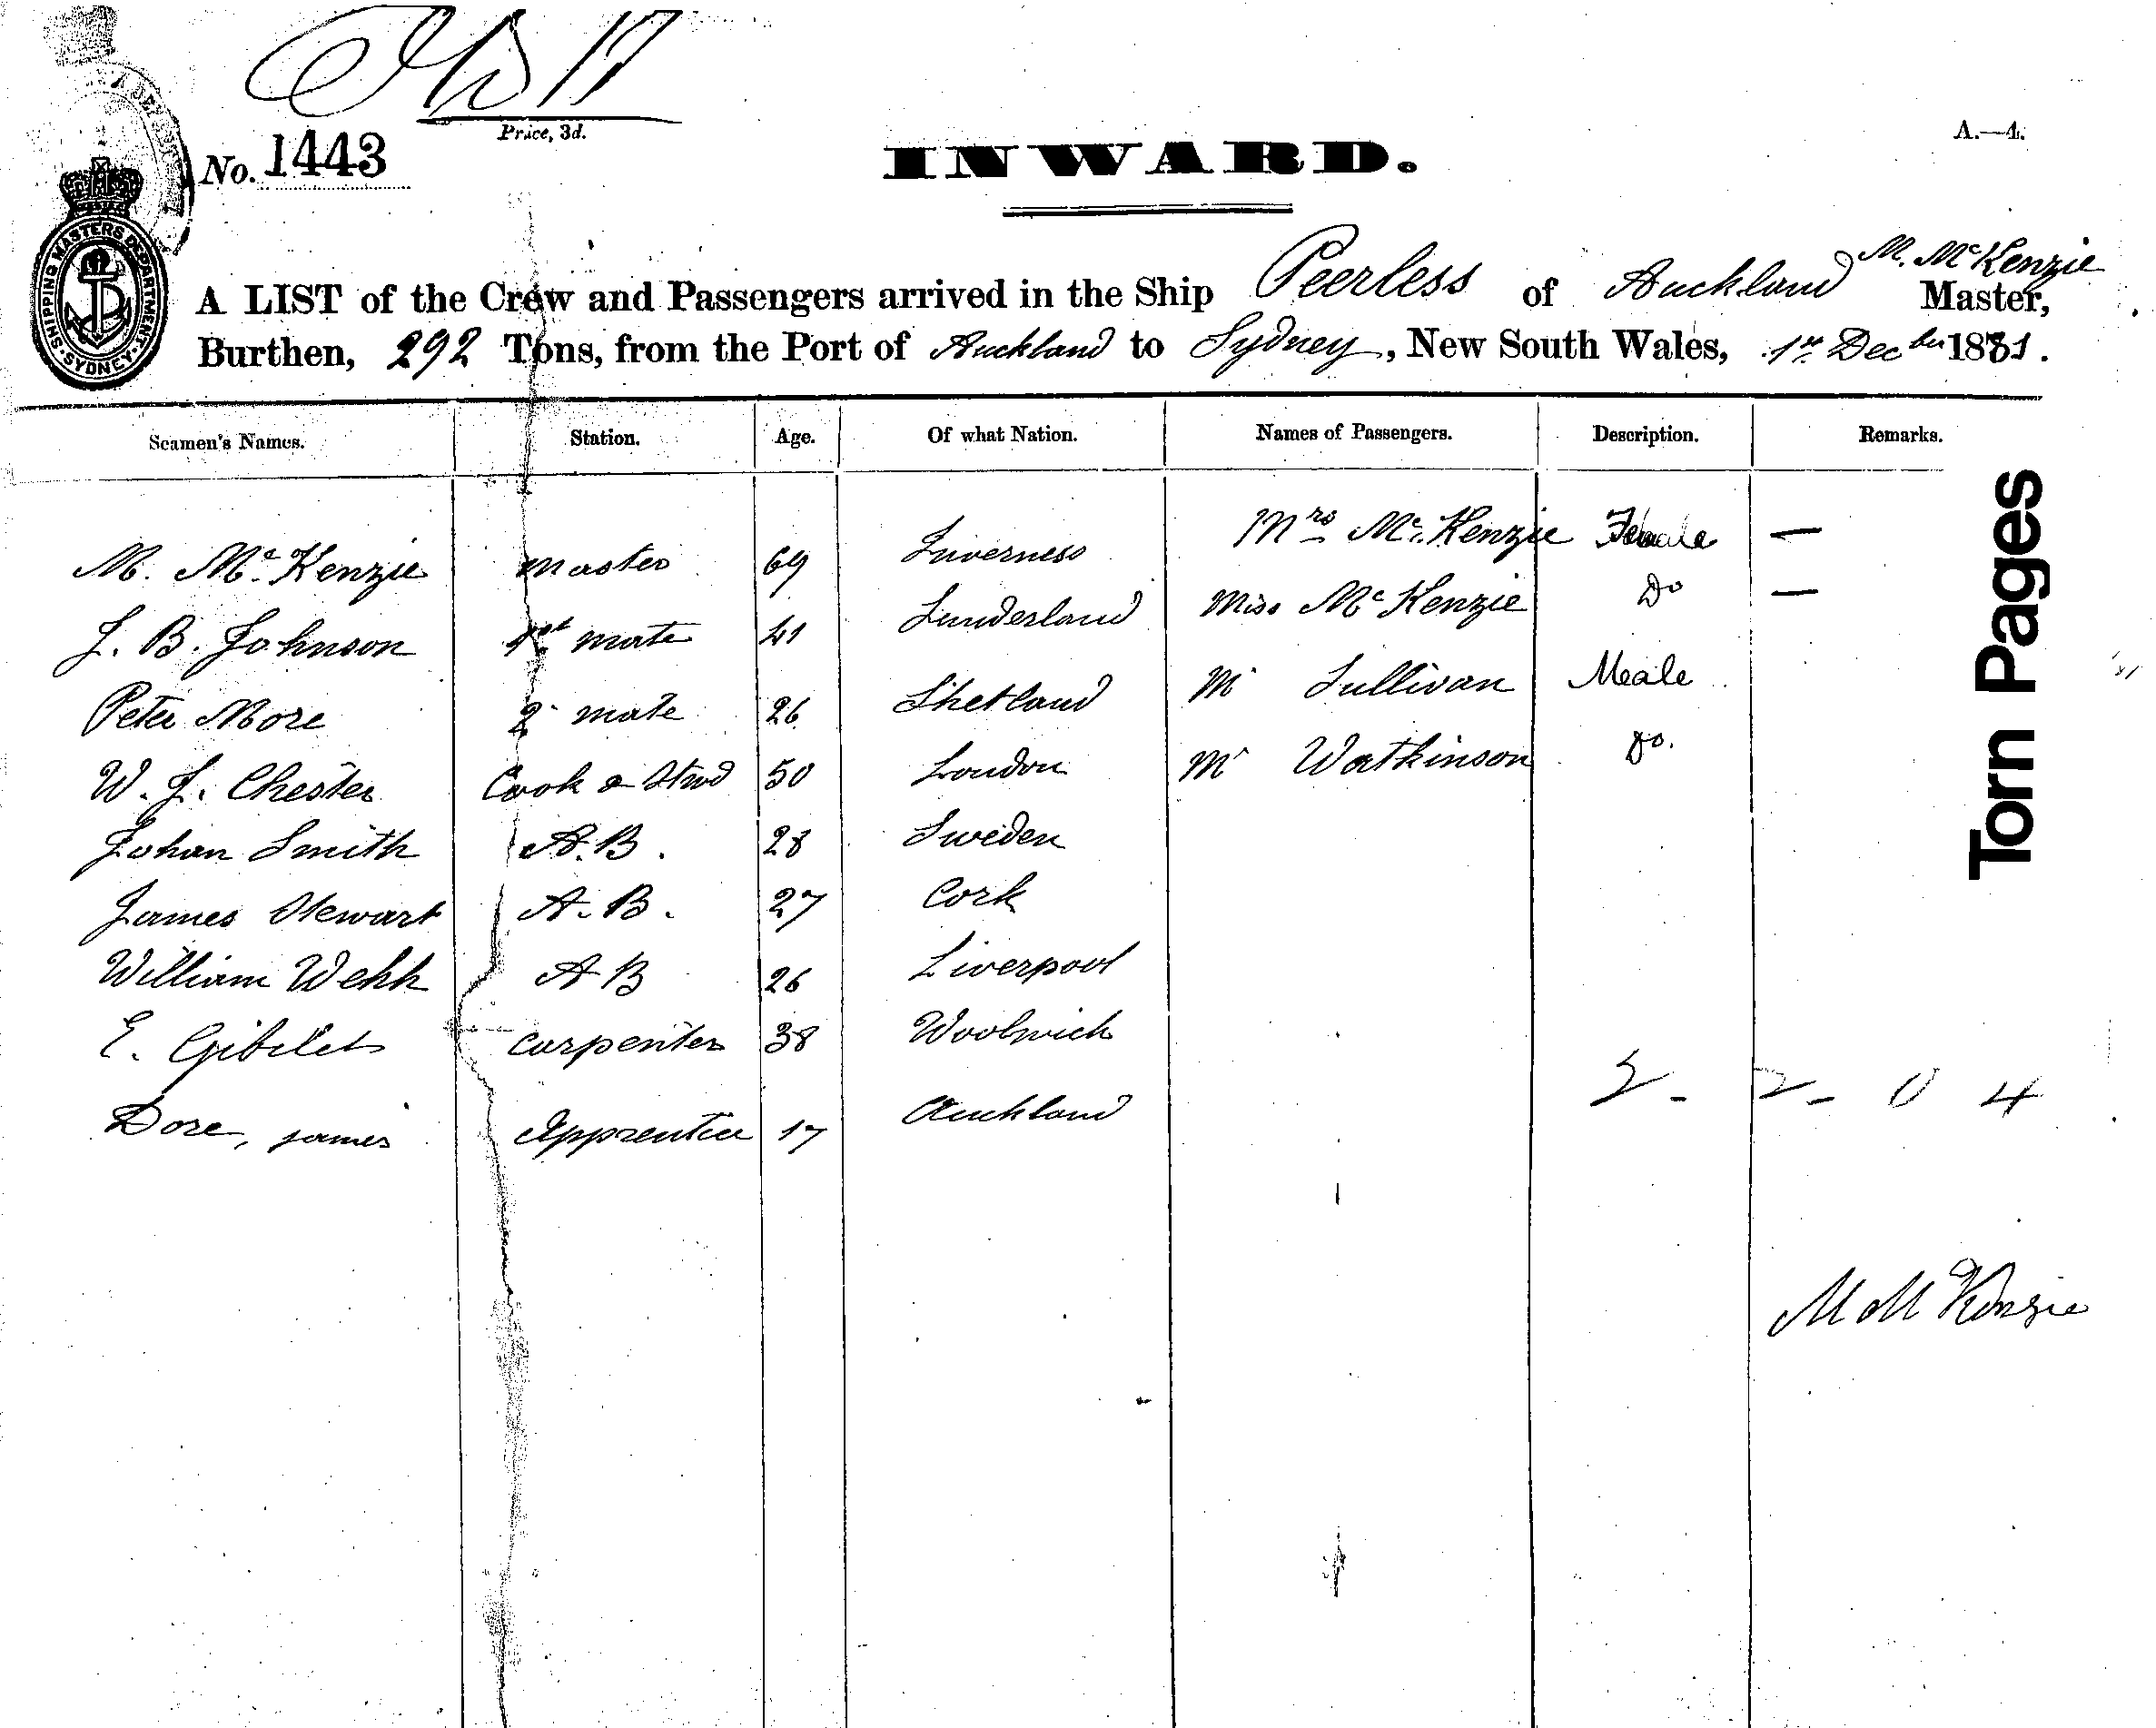 Price, 3d.
No. 1443
INWARD.
A.—4.
SHIPPING MASTERS DEPARTMENT. SYDNEY.
A LIST of the Crew and Passengers arrived in the Ship Peerless of Auckland M. McKenzie Master,
Burthen, 292 Tons, from the Port of Auckland to Sydney, New South Wales, 1st Decber 1881.
Seamen's Names. Station. Age. Of what Nation. Names of Passengers. Description. Remarks.
M. McKenzie master 69 Inverness Mrs McKenzie Female —
J. B. Johnson 1st mate 41 Sunderland Miss McKenzie Do —
Peter More 2 mate 26 Shetland Mr Sullivan Meale
W. J. Chester Cook & Stwd 50 London Mr Watkinson Do.
Johan Smith A.B. 28 Sweden
James Stewart A.B. 27 Cork
William Webb A B 26 Liverpool
E. Gibelet carpenter 38 Woolwich
Dore, james Apprentice 17 Auckland
2 - 2 - 0 4
M McKenzie
Torn Pages